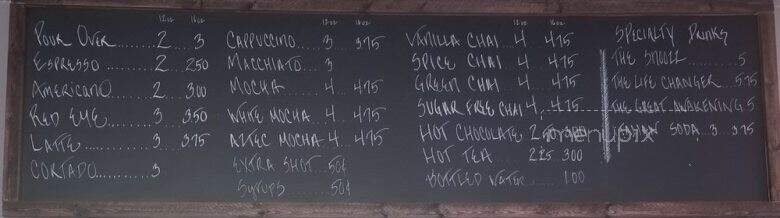 12oz 16oz
Pour Over........ 2 ... 3
Espresso ........ 2 ... 250
Americano ....... 2 ... 300
Red Eye ......... 3 ... 350
Latte ........... 3 ... 375
Cortado....... 3
12oz 16oz
Cappuccino.... 3 ... 375
Macchiato .. 3
Mocha ..... 4 ... 475
White Mocha .. 4 ... 475
Aztec Mocha .. 4 ... 475
Extra Shot .. 50¢
Syrups ..... 50¢
12oz 16oz
Vanilla Chai .. 4 475
Spice Chai ... 4 475
Green Chai ... 4 475
Sugar Free Chai 4 .. 475
Hot Chocolate 2
Hot Tea ... 225 300
Bottled Water ..... 100
Specialty Drinks
The Snooze ......... 5
The Life Changer .... 575
The Great Awakening 5
Soda .. 3 .. 375
menupix